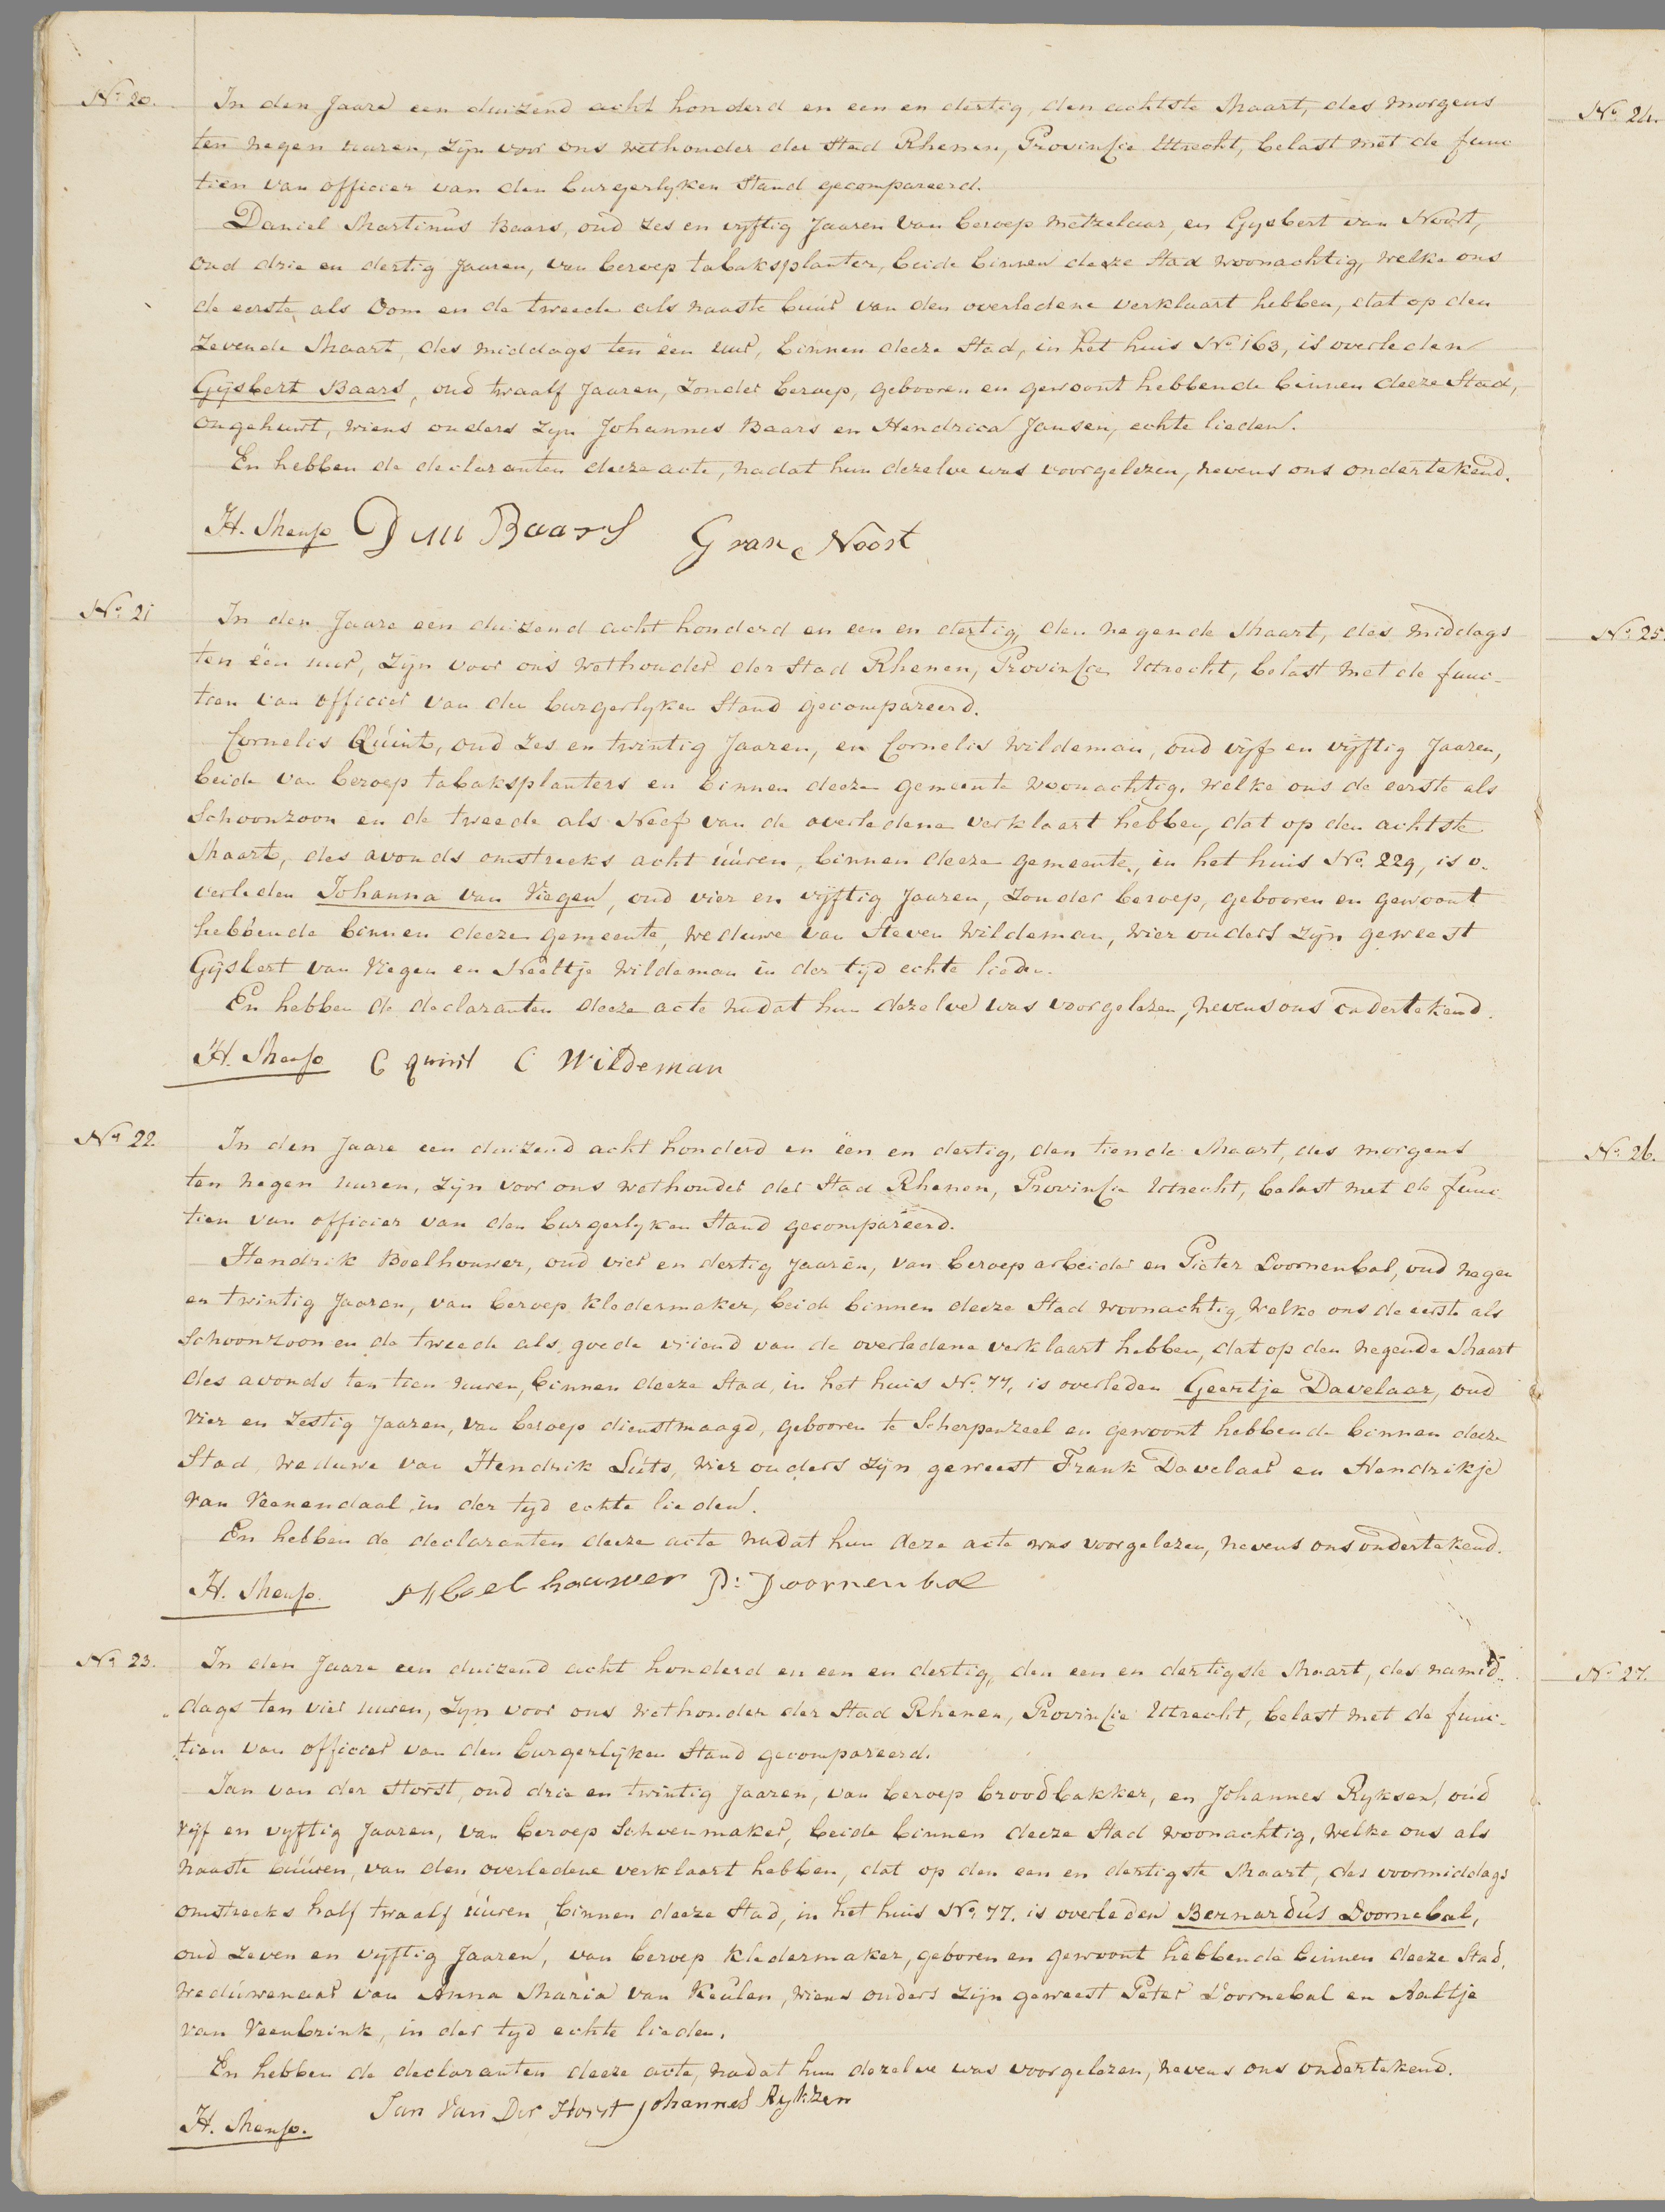 No. 20.
In den Jaare een duizend acht honderd en een en dertig, den achtste Maart, des morgens
ten negen uuren, zijn voor ons wethouder der Stad Rhenen, Provinsie Utrecht, belast met de func
tien van officier van den burgerlyken Stand gecompareerd.
Daniel Martinus Baars, oud zes en vyftig Jaaren van beroep metzelaar, en Gysbert van Noort,
oud drie en dertig Jaaren, van beroep tabaksplanter, beide binnen deeze Stad woonachtig, welke ons
de eerste als Oom en de tweede als naaste buur van den overledene verklaart hebben, dat op den
zevende Maart, des middags ten een uur, binnen deeze Stad, in het huis No. 163, is overleden
Gijsbert Baars, oud twaalf Jaaren, zonder beroep, gebooren en gewoont hebbende binnen deeze Stad,
ongehuwt, wiens ouders zyn Johannes Baars en Hendrica Jansen, echte lieden.
En hebben de declaranten deeze acte, nadat hun dezelve was voorgelezen, nevens ons ondertekend.
H. Menso D M Baars G van Noort
No. 21
In den Jaare een duizend acht honderd en een en dertig, den negende Maart, des middags
ten één uur, zijn voor ons wethouder der Stad Rhenen, Provinsie Utrecht, belast met de func-
tien van officier van den burgerlyken Stand gecompareerd.
Cornelis Quint, oud zes en twintig Jaaren, en Cornelis Wildeman, oud vijf en vijftig Jaaren,
beide van beroep tabaksplanters en binnen deeze gemeente woonachtig, welke ons de eerste als
Schoonzoon en de tweede als Neef van de overledene verklaart hebben, dat op den achtste
Maart, des avonds omstreeks acht úúren, binnen deeze gemeente, in het huis No. 229, is o-
verleden Johanna van Viegen, oud vier en vijftig Jaaren, zonder beroep, gebooren en gewoont
hebbende binnen deeze gemeente, weduwe van Steven Wildeman, wier ouders zijn geweest
Gijsbert van Viegen en Neeltje Wildeman in der tijd echte lieden.
En hebben de declaranten deeze acte nadat hun dezelve was voorgelezen, nevens ons ondertekend.
H. Menso C quint C Wildeman
No. 22.
In den Jaare een duizend acht honderd en één en dertig, den tiende Maart, des morgens
ten negen uuren, zijn voor ons wethouder der Stad Rhenen, Provinsie Utrecht, belast met de func-
tien van officier van den burgerlyken Stand gecompareerd.
Hendrik Boelhouwer, oud vier en dertig Jaaren, van beroep arbeider en Pieter Doornenbal, oud negen
en twintig Jaaren, van beroep kledermaker, beide binnen deeze Stad woonachtig, welke ons de eerste als
Schoonzoon en de tweede als goede vriend van de overledene verklaart hebben, dat op den negende Maart
des avonds ten tien uuren, binnen deeze Stad, in het huis No. 77, is overleden Geertje Davelaar, oud
vier en zestig Jaaren, van beroep dienstmaagd, gebooren te Scherpenzeel en gewoont hebbende binnen deeze
Stad, weduwe van Hendrik Suts, wier ouders zijn geweest Frank Davelaar en Hendrikje
van Veenendaal, in der tyd echte lieden.
En hebben de declaranten deeze acte nadat hun deze acte was voorgelezen, nevens ons ondertekend.
H. Menso. H boelhouwer P: Doornenbal
No. 23.
In den Jaare een duizend acht honderd en een en dertig, den een en dertigste Maart, des namid-
dags ten vier uuren, zyn voor ons wethouder der Stad Rhenen, Provinsie Utrecht, belast met de func-
tien van officier van den burgerlijken Stand gecompareerd.
Jan van der Horst, oud drie en twintig Jaaren, van beroep broodbakker, en Johannes Ryksen, oúd
vijf en vyftig Jaaren, van beroep Schoenmaker, beide binnen deeze Stad woonachtig, welke ons als
naaste búúren, van den overledene verklaart hebben, dat op den een en dertigste Maart, des voormiddags
omstreeks half twaalf úúren, binnen deeze Stad, in het huis No. 77. is overleden Bernardús Doornebal,
oud zeven en vijftig Jaaren, van beroep kledermaker, geboren en gewoont hebbende binnen deeze Stad,
wedúwenaar van Anna Maria van Keulen, wiens ouders zijn geweest Peter Doornebal en Aaltje
van Veenbrink, in der tyd echte lieden.
En hebben de declaranten deeze acte, nadat hun dezelve was voorgelezen, nevens ons ondertekend.
H. Menso. Jan Van Der Horst Johannes Rykzen
No. 24.
No. 25.
No. 26.
No. 27.